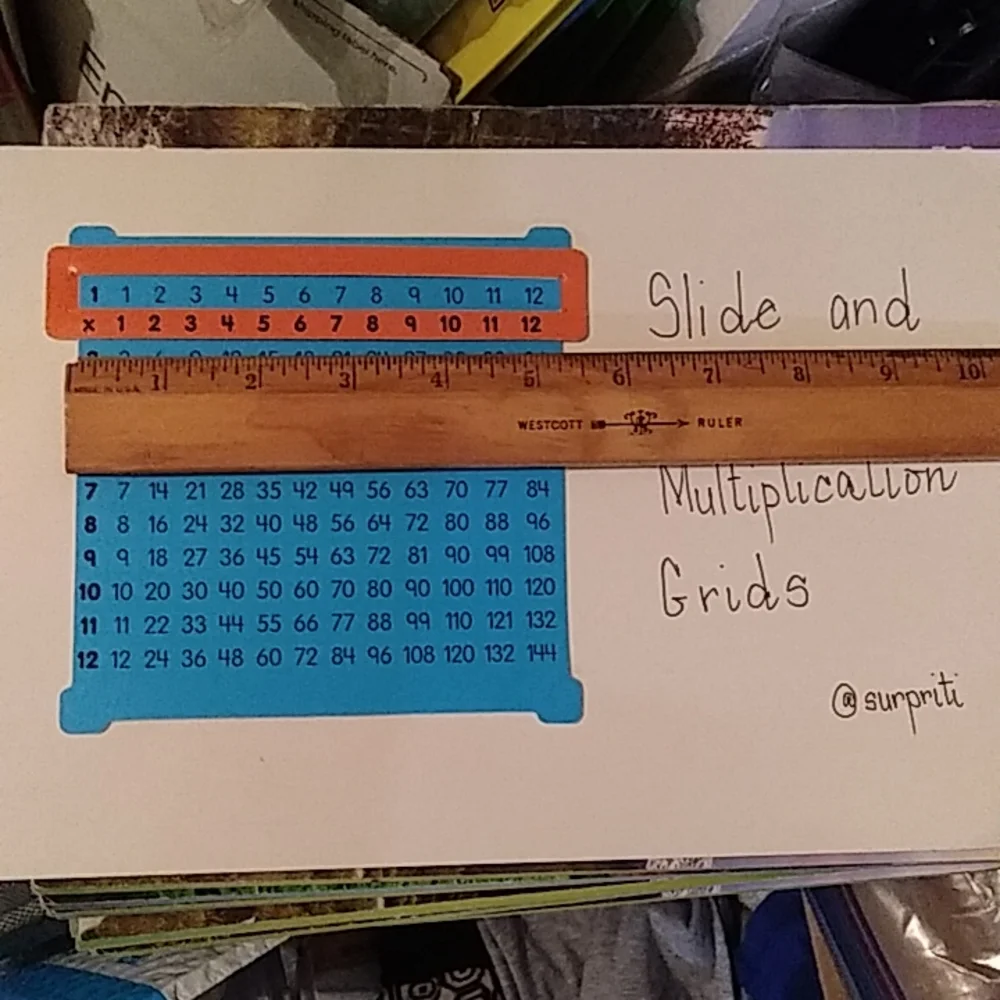 En
shipping label here.
1 1 2 3 4 5 6 7 8 9 10 11 12
x 1 2 3 4 5 6 7 8 9 10 11 12
Slide and
MADE IN U.S.A.
1 2 3 4 5 6 7 8 9 10
WESTCOTT RULER
Multiplication
7 7 14 21 28 35 42 49 56 63 70 77 84
8 8 16 24 32 40 48 56 64 72 80 88 96
9 9 18 27 36 45 54 63 72 81 90 99 108
10 10 20 30 40 50 60 70 80 90 100 110 120
11 11 22 33 44 55 66 77 88 99 110 121 132
12 12 24 36 48 60 72 84 96 108 120 132 144
Grids
@surpriti